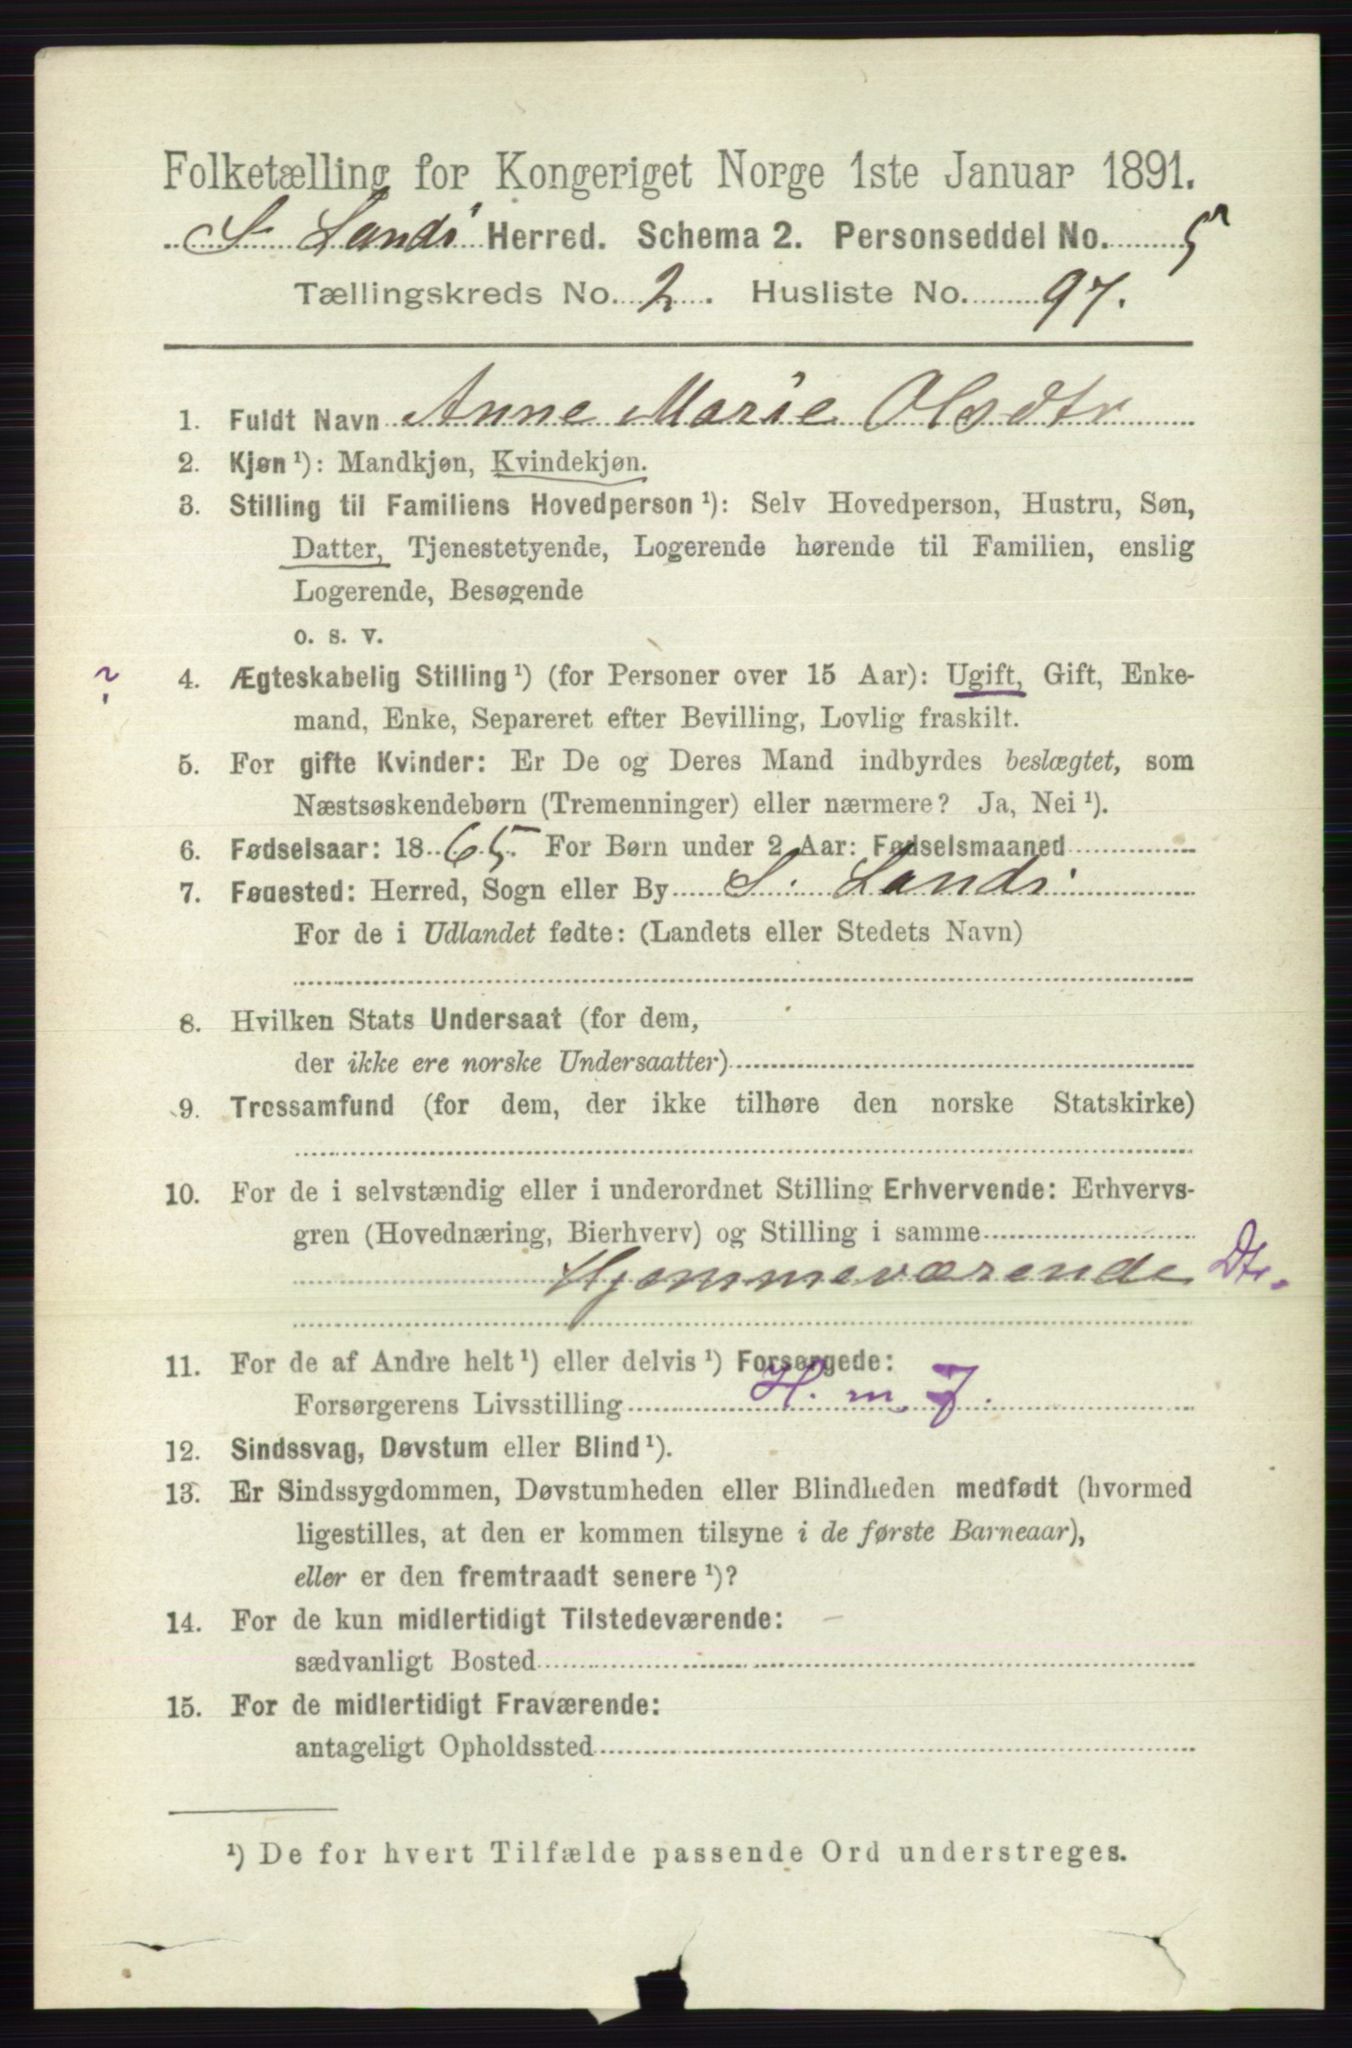 Folketælling for Kongeriget Norge 1ste Januar 1891.
S. Lands Herred. Schema 2. Personseddel No. 5
Tællingskreds No. 2. Husliste No. 97.
1. Fuldt Navn Anne Marie Olsdtr
2. Kjøn ¹): Mandkjøn, Kvindekjøn.
3. Stilling til Familiens Hovedperson ¹): Selv Hovedperson, Hustru, Søn,
Datter, Tjenestetyende, Logerende hørende til Familien, enslig
Logerende, Besøgende
o. s. v.
? 4. Ægteskabelig Stilling ¹) (for Personer over 15 Aar): Ugift, Gift, Enke-
mand, Enke, Separeret efter Bevilling, Lovlig fraskilt.
5. For gifte Kvinder: Er De og Deres Mand indbyrdes beslægtet, som
Næstsøskendebørn (Tremenninger) eller nærmere? Ja, Nei ¹).
6. Fødselsaar: 1865. For Børn under 2 Aar: Fødselsmaaned
7. Fødested: Herred, Sogn eller By S. Lands
For de i Udlandet fødte: (Landets eller Stedets Navn)
8. Hvilken Stats Undersaat (for dem,
der ikke ere norske Undersaatter)
9. Trossamfund (for dem, der ikke tilhøre den norske Statskirke)
10. For de i selvstændig eller i underordnet Stilling Erhvervende: Erhvervs-
gren (Hovednæring, Bierhverv) og Stilling i samme
Hjemmeværende Dtr.
11. For de af Andre helt ¹) eller delvis ¹) Forsørgede:
Forsørgerens Livsstilling H. m. J.
12. Sindssvag, Døvstum eller Blind ¹).
13. Er Sindssygdommen, Døvstumheden eller Blindheden medfødt (hvormed
ligestilles, at den er kommen tilsyne i de første Barneaar),
eller er den fremtraadt senere ¹)?
14. For de kun midlertidigt Tilstedeværende:
sædvanligt Bosted
15. For de midlertidigt Fraværende:
antageligt Opholdssted
¹) De for hvert Tilfælde passende Ord understreges.